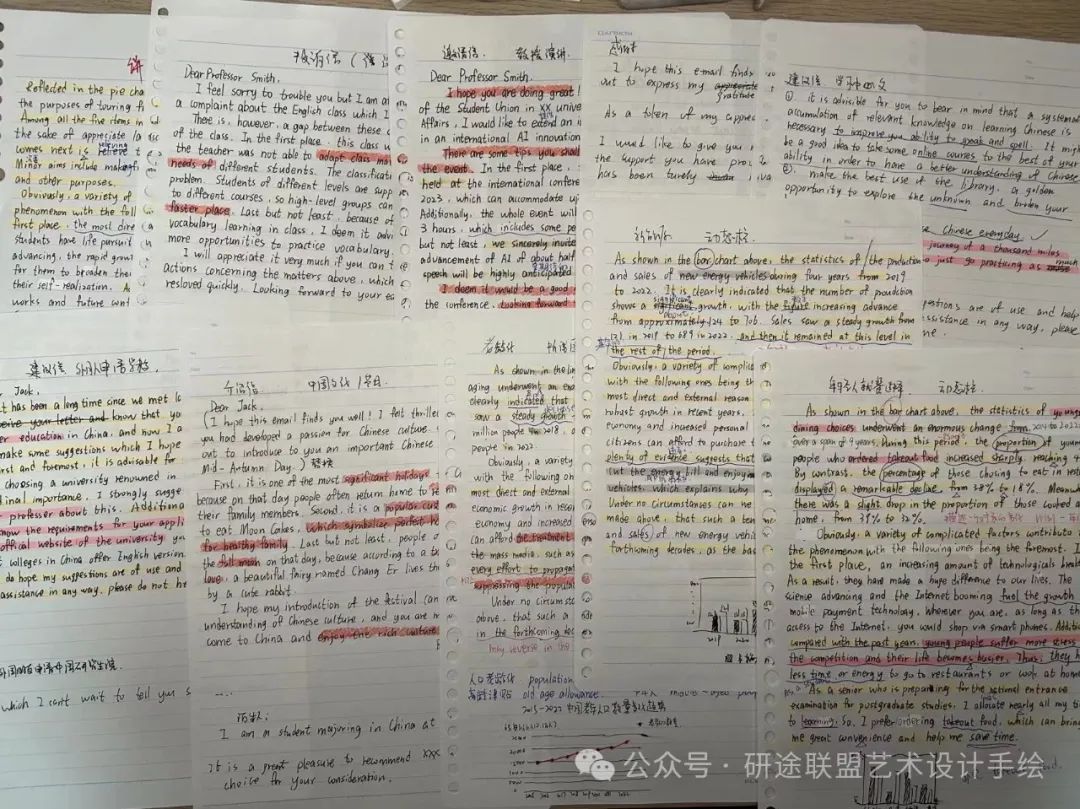 Reflected in the pie cha
the purposes of touring f
Among all the five items in
the sake of appreciate la
comes next is
Minor aims include
and other purposes.
Obviously, a variety of
phenomenon with the foll
first place, the most dire
students have life pursuit
advancing, the rapid grow
for them to broaden the
their self-realization. A
works and future
投诉信
Dear Professor Smith,
I feel sorry to trouble you but I am a
a complaint about the English class which I
There is, however, a gap between these c
of the class. In the first place, this class w
the teacher was not able to adapt class ma
needs of different students. The classificati
problem. Students of different levels are supp
to different courses, so high-level groups can
faster place. Last but not least, because of
vocabulary learning in class, I deem it advi
more opportunities to practice vocabulary.
I will appreciate it very much if you can t
actions concerning the matters above, which
resloved quickly. Looking forward to your ea
邀请信 教授演讲
Dear Professor Smith,
I hope you are doing great!
of the Student Union in XX unive
Affairs, I would like to extend an i
in an international AI innovation
There are some tips you shall
the event. In the first place,
held at the international confere
2023, which can accommodate up
Additionally, the whole event will
3 hours, which includes some pe
but not least, we sincerely invite
advancement of AI of about half
speech will be highly anticipated
I deem it would be a good
the conference. Looking forward
感谢信
I hope this e-mail finds
out to express my
gratitude
As a token of my appre
I would like to give you
the support you have prov
has been
建议信 学中文
①. it is advisible for you to bear in mind that a systemat
accumulation of relevant knowledge on learning Chinese is
necessary to improve you ability to speak and spell. It migh
be a good idea to take some online courses to the best of your
ability in order to have a better understanding of Chinese
②. make the best use of the library, a golden
opportunity to explore the unknown and broden your
Chinese everyday
journey of a thousand miles
to just go practicing as much
estions are of use and help
ssistance in any way, please
me.
动态图
As shown in the bar chart above, the statistics of the production
and sales of new energy vehicles during four years from 2019
to 2022. It is clearly indicated that the number of proudction
shows a significant growth, with the figure increasing advance
from approximately 124 to 706. Sales saw a steady growth from
121 in 2019 to 689 in 2022, and then it remained at this level in
the rest of the period.
Obviously, a variety of complic
with the following ones being the
most direct and external reason
robust growth in recent years,
economy and increased personal
citizens can afford to purchase t
plenty of evidence suggests that
cut the energy bill and enjoy
vehicles, which explains why
Under no circumstances can we
made above, that such a ten
and sales) of new energy vehic
forthcoming decades, as the bas
建议信 外国人申请学校
Jack,
t has been a long time since we met la
ceive your letter and know that yo
er education in China, and now I a
make some suggestions which I hope
irst and foremost, it is advisable for
choosing a university renowned in
inal importance, I strongly sugge
professor about this. Additiona
now the requirements for your applic
official website of the university yo
t colleges in China offer English version.
do hope my suggestions are of use and
assistance in any way, please do not he
which I can't wait to tell you s
介绍信 中国文化 节日
Dear Jack,
(I hope this email finds you well! I felt thrille
you had developed a passion for Chinese culture.
out to introduce to you an important Chinese
Mid-Autumn Day.) 替换
First, it is one of the most significant holidays
because on that day people often return home to
their family members. Second, it is a popular cus
to eat Moon Cakes, which symbolize
for healthy family. Last but not least, people
the full moon on that day, because according to a
love, a beautiful fairy named Chang Er lives the
by a cute rabbit.
I hope my introduction of the festival can
understanding of Chinese culture, and you are
come to China and enjoy the rich culture
....
I am a student majoring in China at
It is a great pleasure to recommend XXX
choice for your consideration.
老龄化
As shown in the lin
aging underwent an eno
clearly indicated that
saw a steady growth
million people in 2018,
people in 2022
Obviously, a variety
with the following on
most direct and external
economic growth in recen
economy and increased
can afford the treatment
the mass media, such as
every effort to propagat
Under no circumst
above, that such a
in the forthcoming dec
may reverse in the
人口老龄化 population
高龄津贴 old age allowance.
年轻人就餐选择 动态图
As shown in the bar chart above, the statistics of younge
dining choices underwent an enormous change from 2014 to 2022
over a span of 9 years. During this period, the proportion of young
people who ordered takeout food increased sharply, reaching 4
By contrast, the percentage of those chosing to eat in rest
displayed a remarkable decline, from 38% to 18%. Meanw
there was a slight drop in the proportion of those cooked a
home, from 35% to 32%.
Obviously, a variety of complicated factors contribute t
the phenomenon with the following ones being the foremost. I
the first place, an increasing amount of technologicals break
As a result, they have made a huge difference to our lives. The
science advancing and the Internet booming fuel the growth
mobile payment technology. Wherever you are, as long as the
access to the Internet, you would shop via smart phones. Additi
compared with the past years, young people suffer more stress
the competition and their life becomes busier. Thus, they ha
less time or energy to go to restaurants or cook at home
As a senior who is preparing for the national entrance
examination for postgraduate studies, I allocate nearly all my ti
to learning. So, I prefer ordering takeout food, which can bring
me great convenience and help me save time.
公众号 · 研途联盟艺术设计手绘